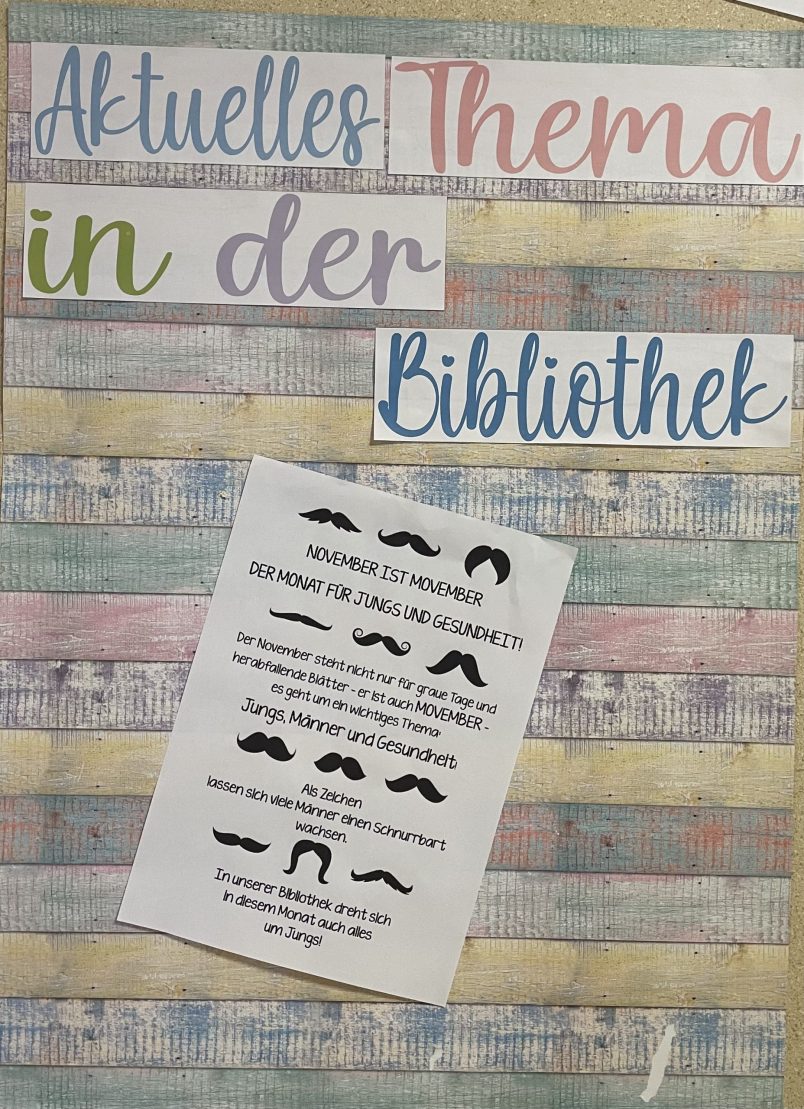 Aktuelles Thema
in der
Bibliothek
NOVEMBER IST MOVEMBER
DER MONAT FÜR JUNGS UND GESUNDHEIT!
Der November steht nicht nur für graue Tage und
herabfallende Blätter - er ist auch MOVEMBER -
es geht um ein wichtiges Thema:
Jungs, Männer und Gesundheit!
Als Zeichen
lassen sich viele Männer einen Schnurrbart
wachsen.
In unserer Bibliothek dreht sich
in diesem Monat auch alles
um Jungs!